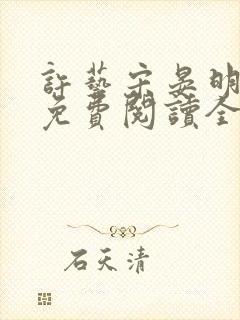 許藝宋晏明
免費閱讀全
石天清